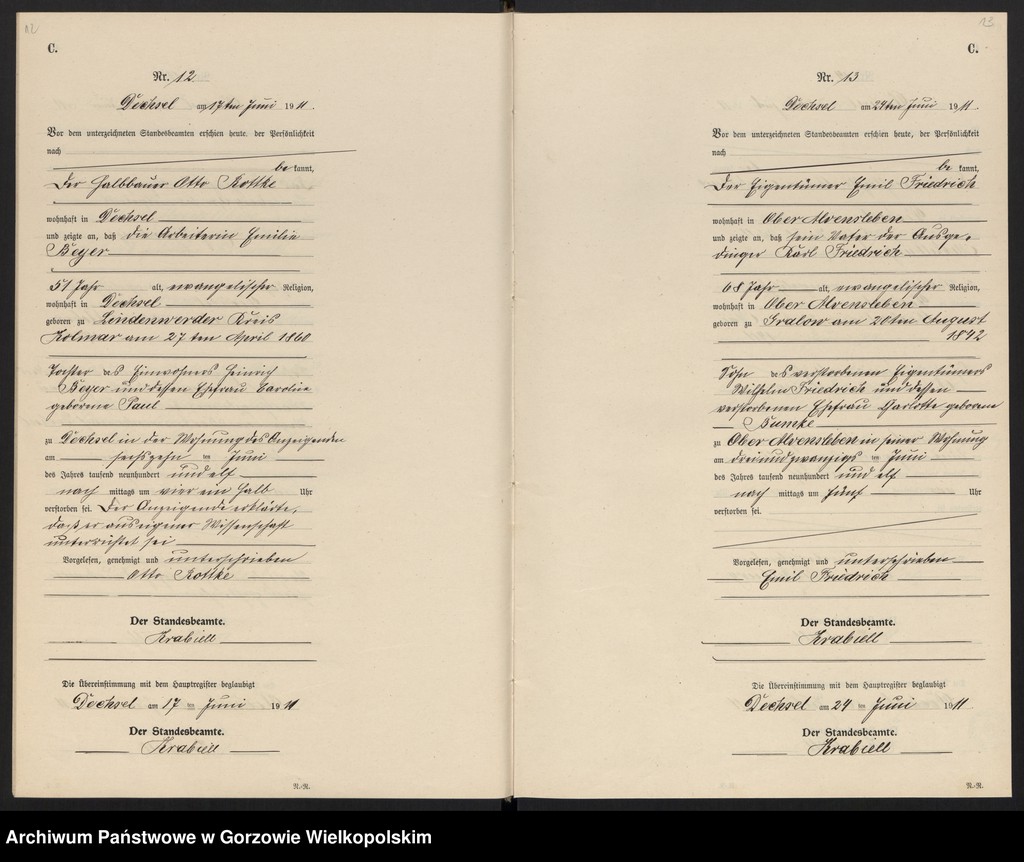 12
C.
Nr. 12
Dechsel am 17ten Juni 1911.
Vor dem unterzeichneten Standesbeamten erschien heute, der Persönlichkeit
nach
be kannt,
Der Halbbauer Otto Rottke
wohnhaft in Dechsel
und zeigte an, daß die Arbeiterin Emilie
Beyer
51 Jahr alt, evangelischer Religion,
wohnhaft in Dechsel
geboren zu Lindenwerder Kreis
Kolmar am 27ten April 1860
Tochter des Einwohners Heinrich
Beyer und dessen Ehefrau Caroline
geborene Paul
zu Dechsel in der Wohnung des Anzeigenden
am sechszehn ten Juni
des Jahres tausend neunhundert und elf
nach mittags um vier ein halb Uhr
verstorben sei. Der Anzeigende erklärte,
daß er aus eigener Wissenschaft
unterrichtet sei
Vorgelesen, genehmigt und unterschrieben
Otto Rottke
Der Standesbeamte.
Krabiell
Die Übereinstimmung mit dem Hauptregister beglaubigt
Dechsel am 17 ten Juni 1911
Der Standesbeamte.
Krabiell
N.-N.
13
C.
Nr. 13
Dechsel am 24ten Juni 1911.
Vor dem unterzeichneten Standesbeamten erschien heute, der Persönlichkeit
nach
be kannt,
Der Eigentümer Emil Friedrich
wohnhaft in Ober Alvensleben
und zeigte an, daß sein Vater der Ausge-
dinger Karl Friedrich
68 Jahr alt, evangelischer Religion,
wohnhaft in Ober Alvensleben
geboren zu Gralow am 20ten August
1842
Sohn des verstorbenen Eigentümers
Wilhelm Friedrich und dessen
verstorbenen Ehefrau Charlotte geborene
Bumke
zu Ober Alvensleben in seiner Wohnung
am dreiundzwanzigs ten Juni
des Jahres tausend neunhundert und elf
nach mittags um fünf Uhr
verstorben sei.
Vorgelesen, genehmigt und unterschrieben
Emil Friedrich
Der Standesbeamte.
Krabiell
Die Übereinstimmung mit dem Hauptregister beglaubigt
Dechsel am 24 ten Juni 1911.
Der Standesbeamte.
Krabiell
N.-N.
Archiwum Państwowe w Gorzowie Wielkopolskim